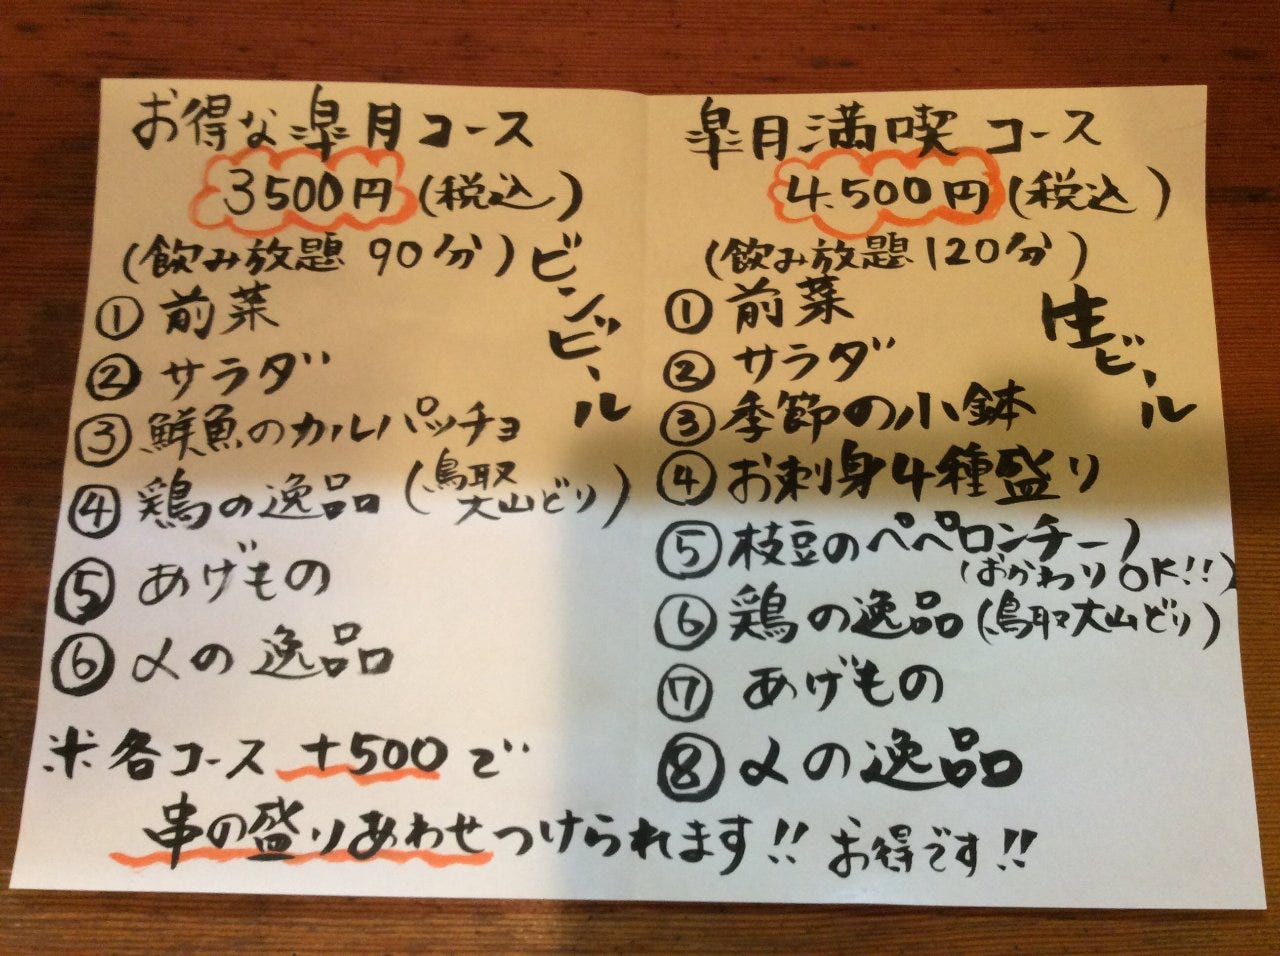 お得な皐月コース
3500円(税込)
(飲み放題 90分)
ビンビール
① 前菜
② サラダ
③ 鮮魚のカルパッチョ
④ 鶏の逸品 (鳥取大山どり)
⑤ あげもの
⑥ 〆の逸品
皐月満喫コース
4.500円(税込)
(飲み放題120分)
生ビール
① 前菜
② サラダ
③ 季節の小鉢
④ お刺身4種盛り
⑤ 枝豆のペペロンチーノ
(おかわりOK!!)
⑥ 鶏の逸品(鳥取大山どり)
⑦ あげもの
⑧ 〆の逸品
※各コース +500で
串の盛りあわせつけられます!! お得です!!